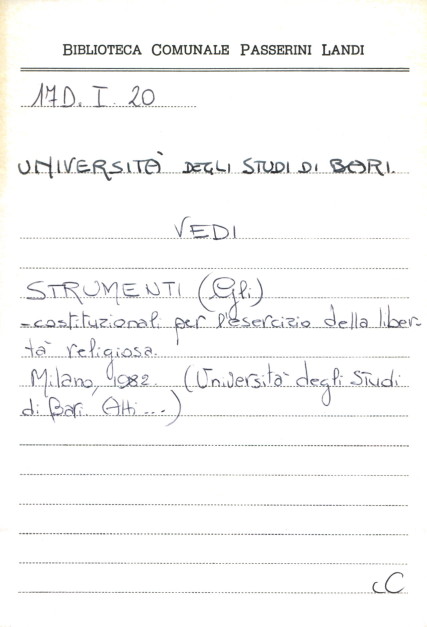 BIBLIOTECA COMUNALE PASSERINI LANDI
17D. I. 20
UNIVERSITÀ DEGLI STUDI DI BARI.
VEDI
STRUMENTI (Gli)
-costituzionali per l'esercizio della liber-
tà religiosa.
Milano, 1982. (Università degli Studi
di Bari. Atti...)
CC